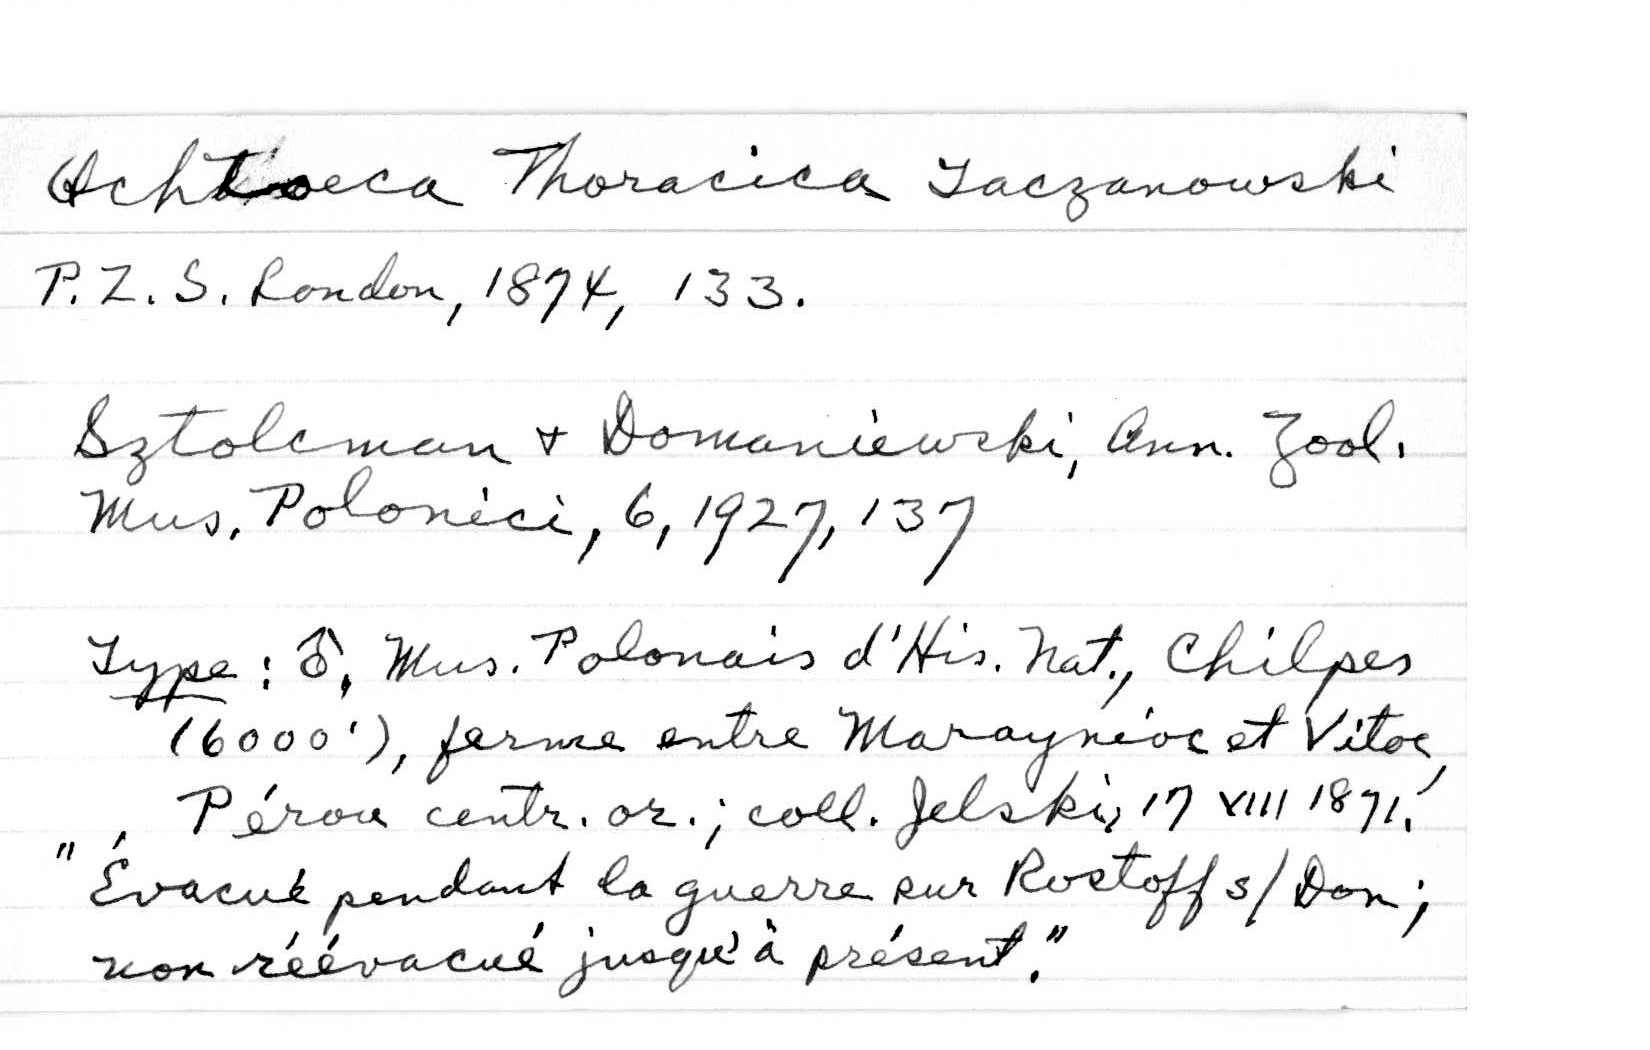 Ochthoeca Thoracica Taczanowski
P.Z.S. London, 1874, 133.
Sztolcman + Domaniewski, Ann. Zool.
Mus. Polonici, 6, 1927, 137
Type: ♂, Mus. Polonais d'His. Nat., Chilpes
(6000'), ferme entre Maraynioc et Vitoc,
Pérou centr. or.; coll. Jelski, 17 XIII 1871.
"Évacué pendant la guerre sur Rostoff s/Don;
non réévacué jusqu'à présent."